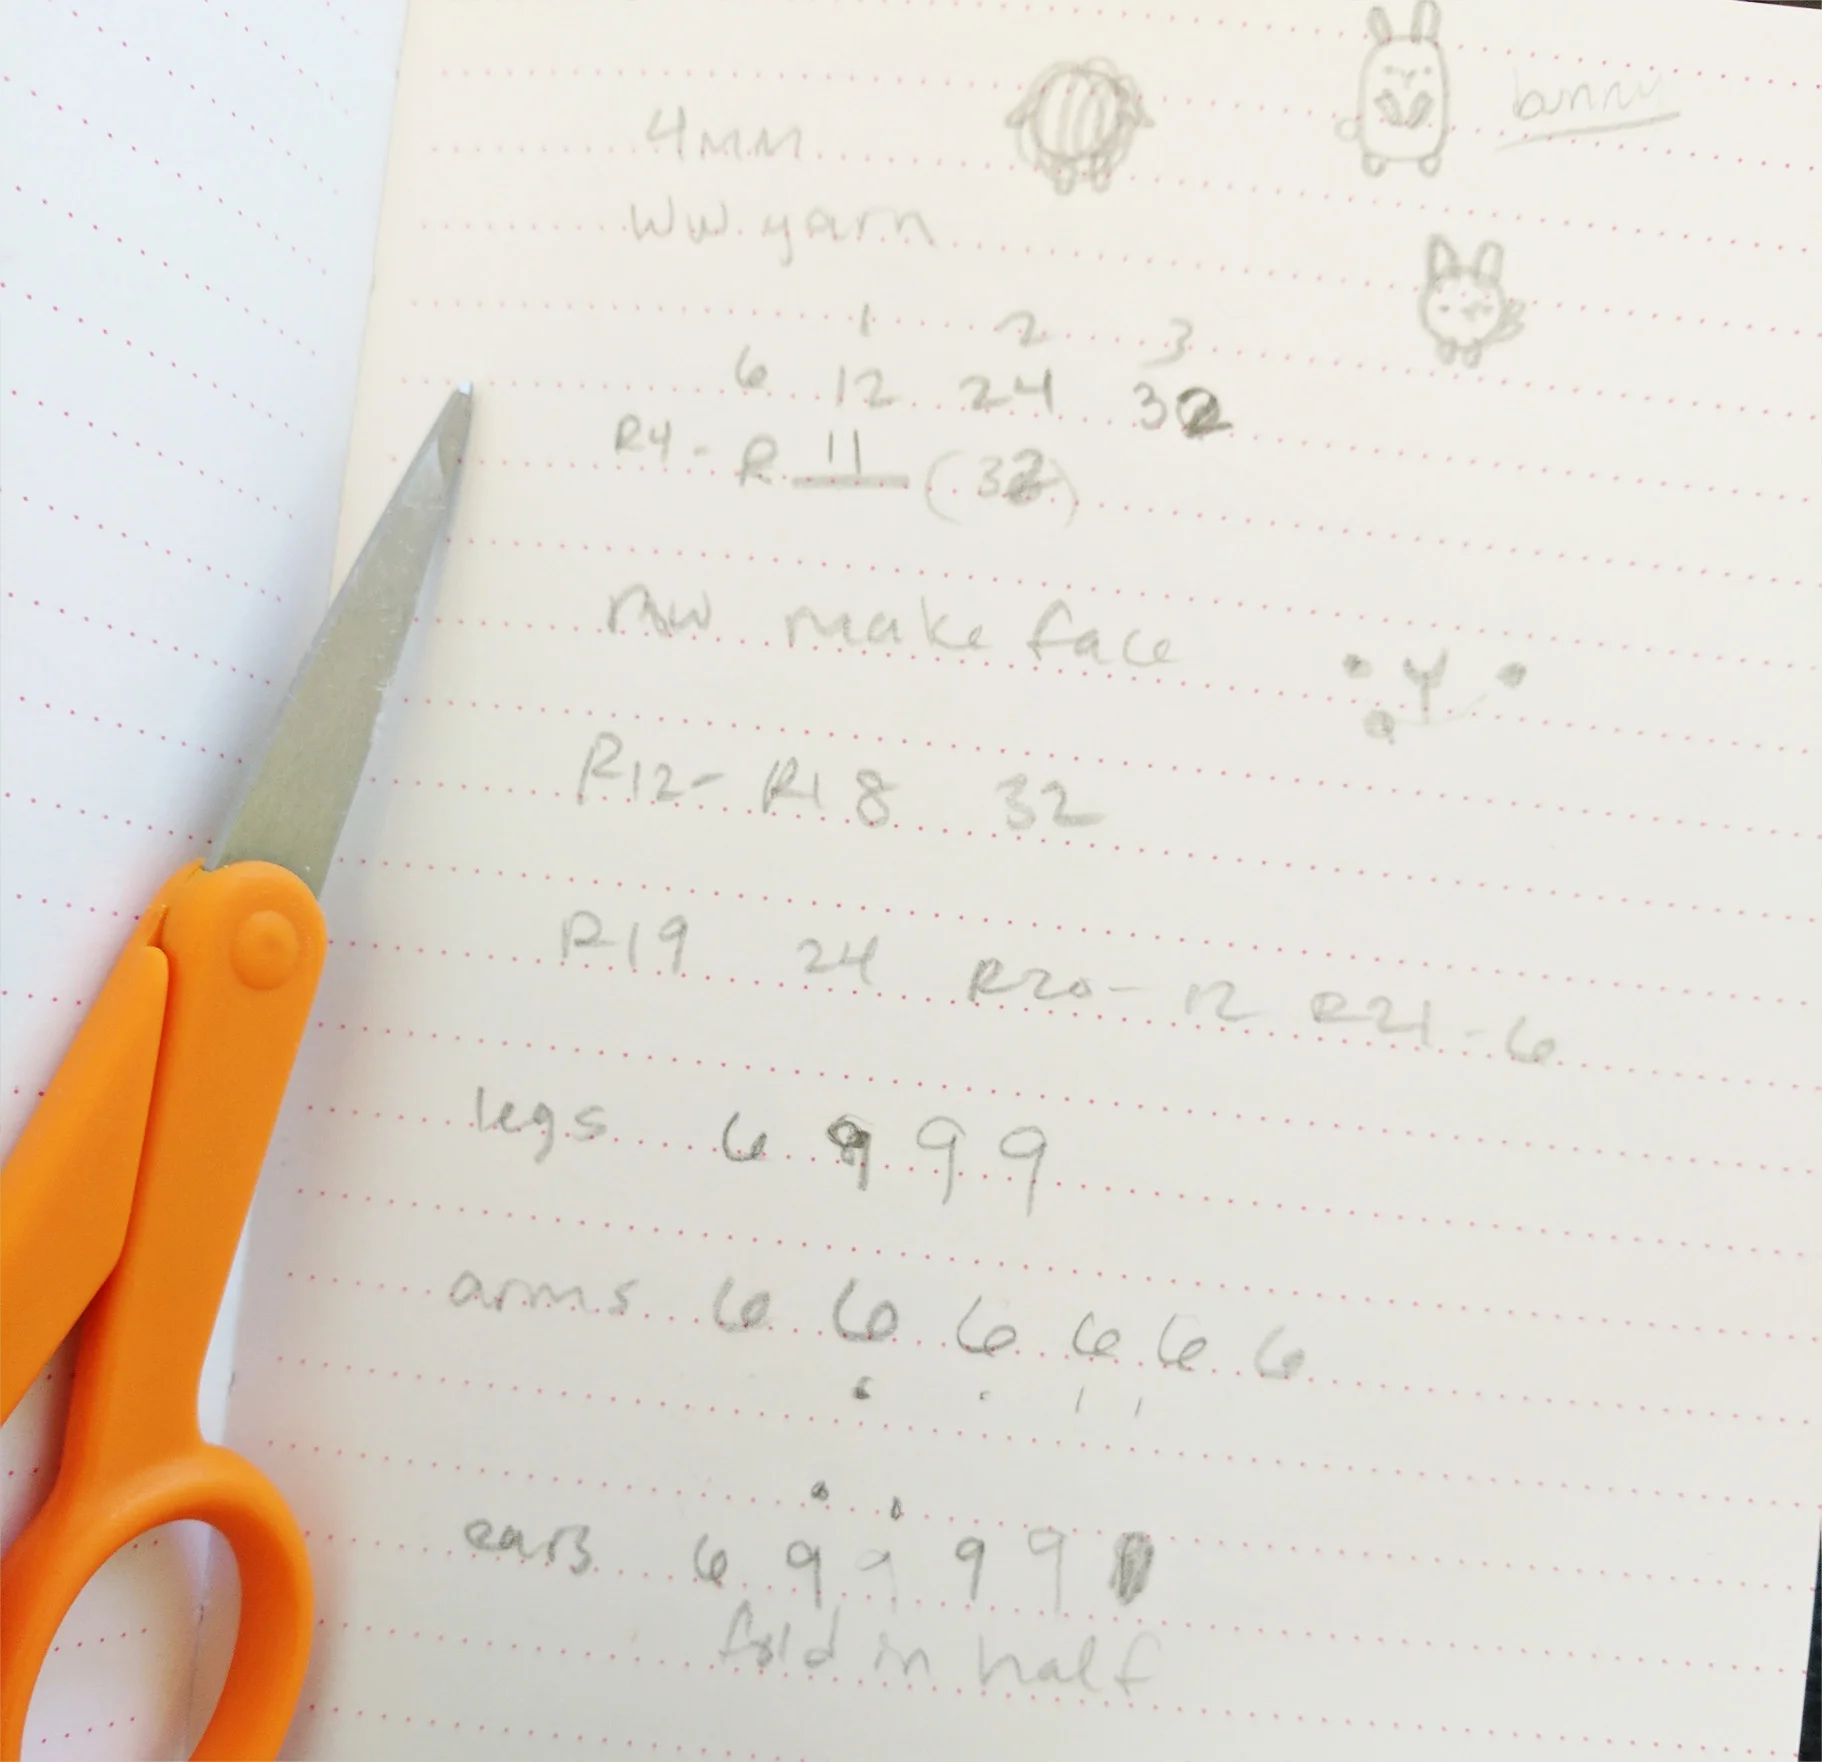 bunny
4mm
ww yarn
1 2 3
6 12 24 32
R4 - R 11 (32)
now make face
R12 - R18 32
R19 24 R20 - 12 R21 - 6
legs 6 9 9 9
arms 6 6 6 6 6 6
ears 6 9 9 9 9
fold in half